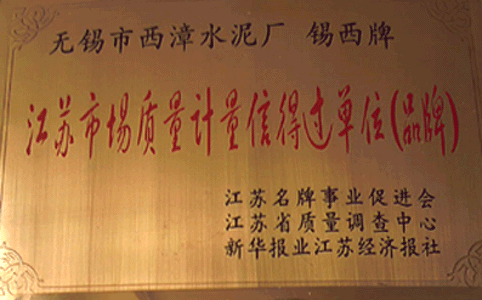 无锡市西漳水泥厂 锡西牌
江苏市场质量计量信得过单位(品牌)
江苏名牌事业促进会
江苏省质量调查中心
新华报业江苏经济报社